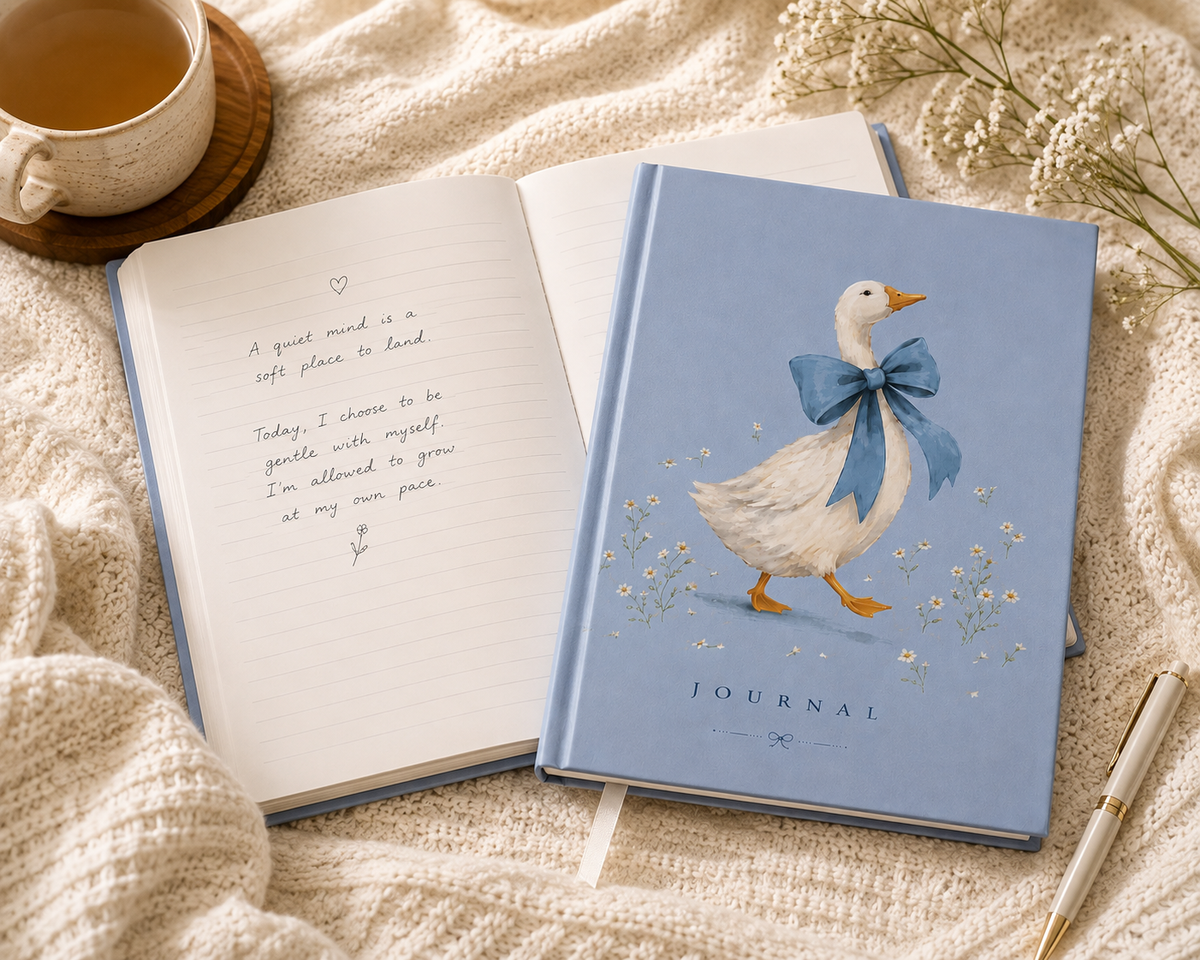 A quiet mind is a
soft place to land.
Today, I choose to be
gentle with myself.
I'm allowed to grow
at my own pace.
JOURNAL